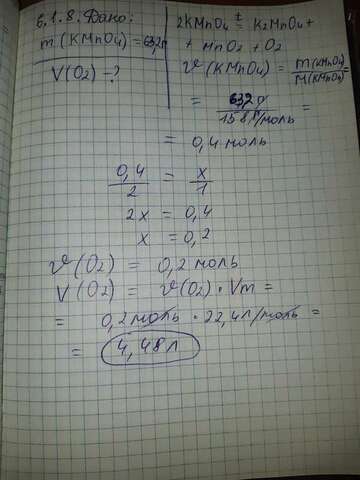 6.1.8. Дано:
m(KMnO4) = 63,2г
V(O2) - ?
2KMnO4 t= K2MnO4 +
+ MnO2 + O2
ν(KMnO4) = m(KMnO4)/M(KMnO4) =
= 63,2 г/158 г/моль =
= 0,4 моль
0,4/2 = x/1
2x = 0,4
x = 0,2
ν(O2) = 0,2 моль
V(O2) = ν(O2) · Vm =
= 0,2 моль · 22,4 л/моль =
= 4,48 л